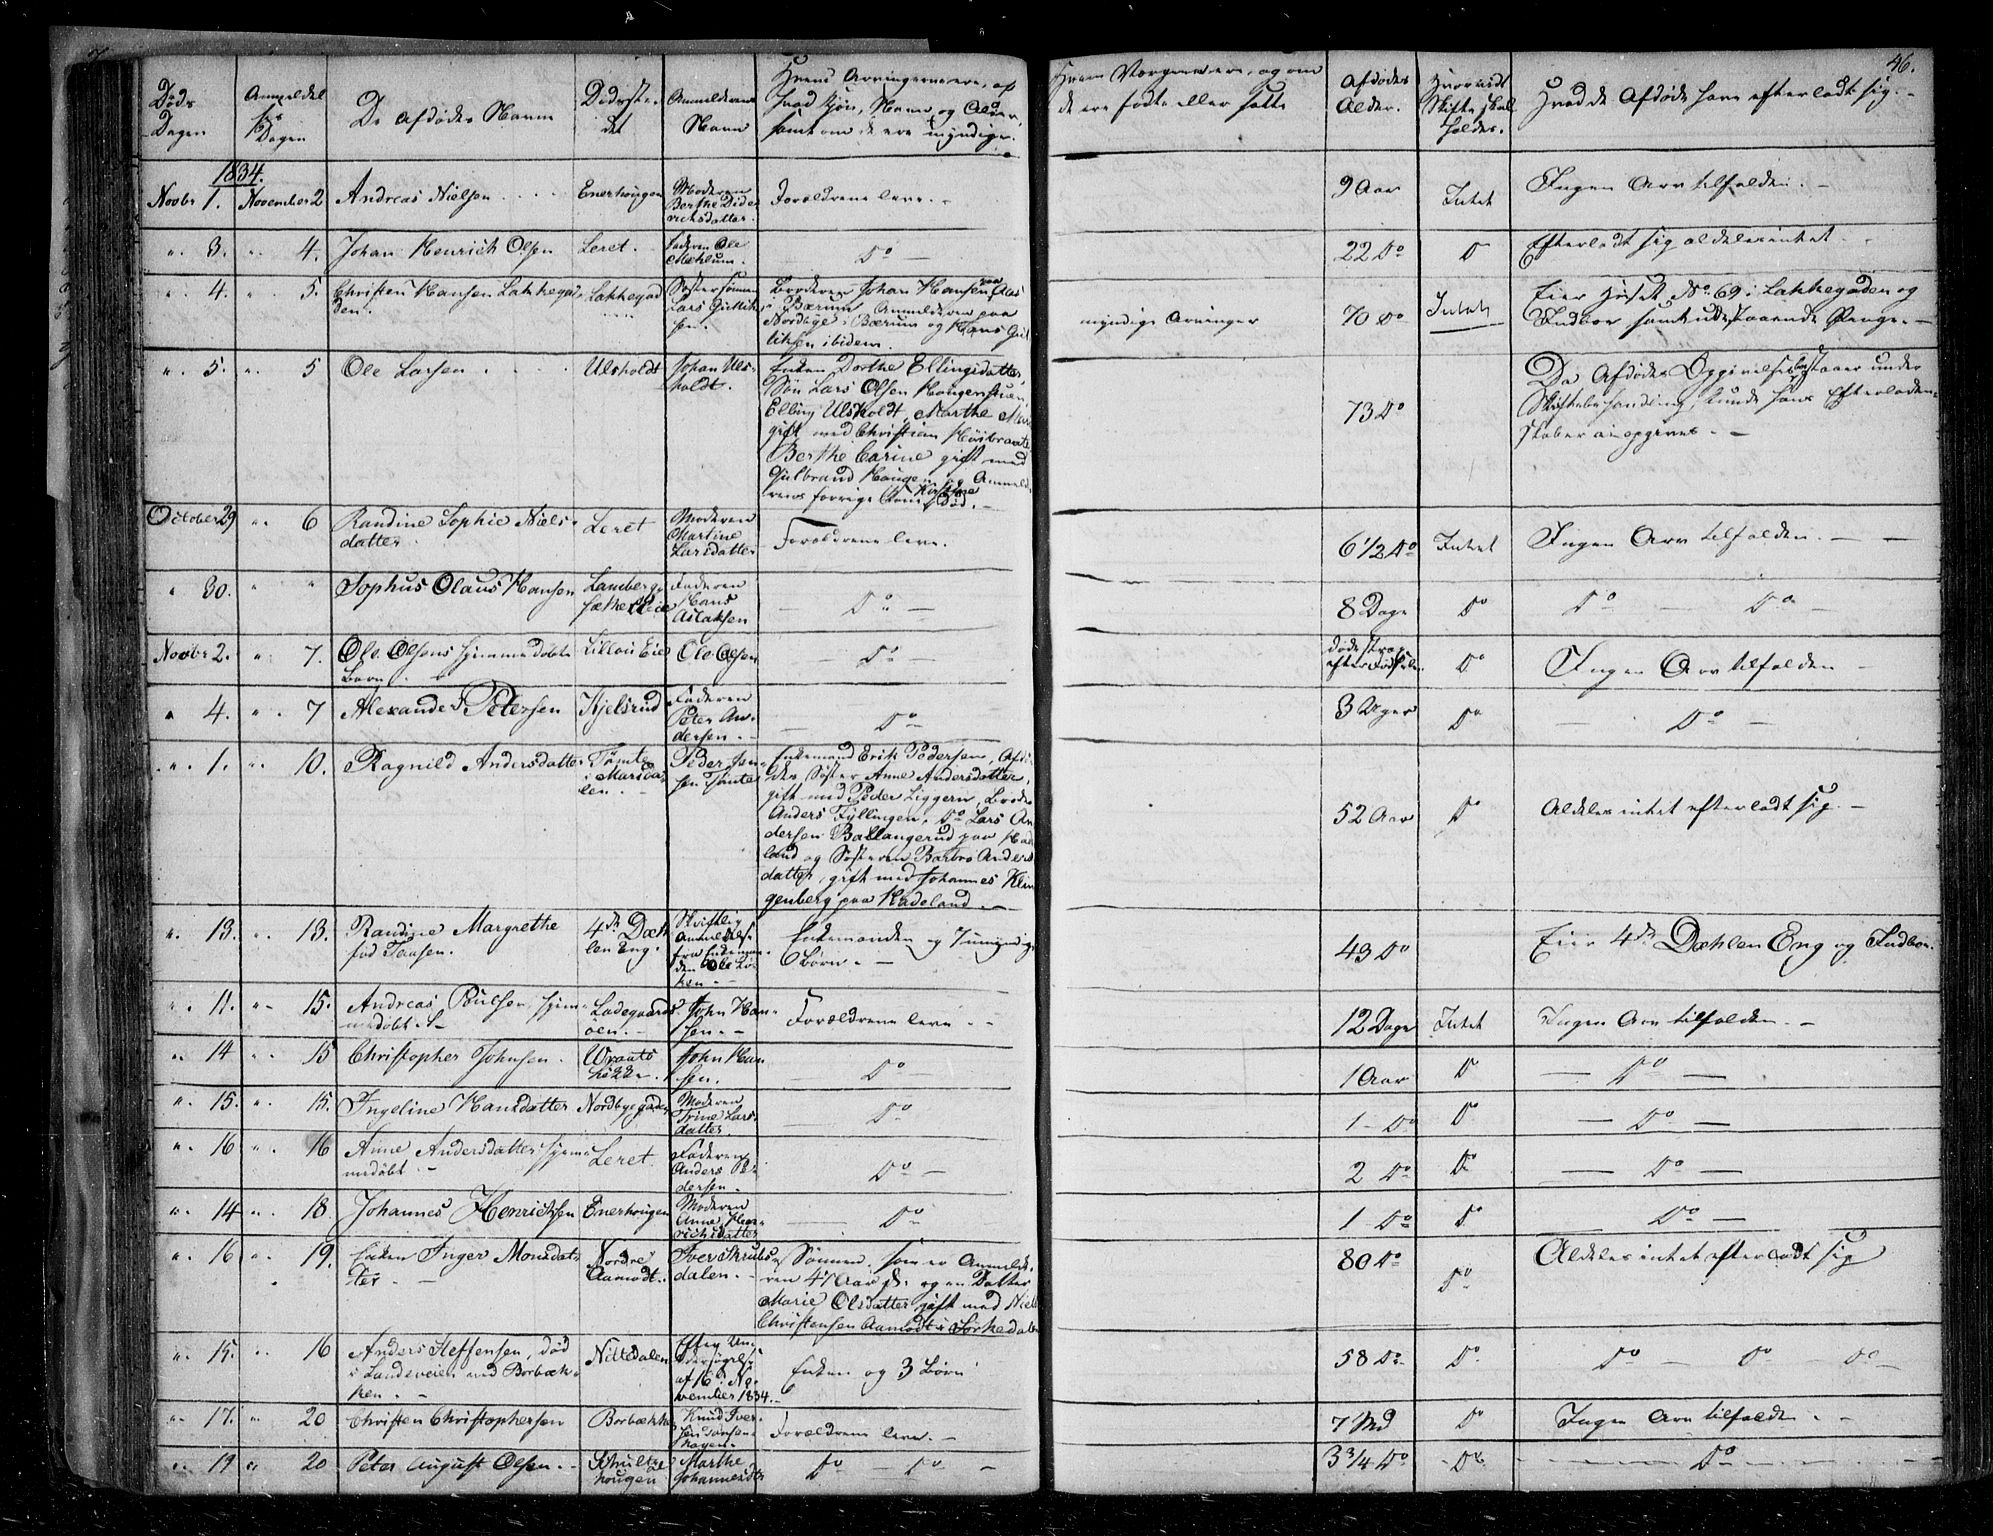 46.
Døds Dagen | Anmeldelses Dagen | De Afdødes Navne | Dødsstedet | Anmelderens Navn | Hvem Arvingerne ere, af hvad Kjøn, Navne og Alder, samt om de ere myndige. | Hvem Værgerne ere, og om de ere fødte eller satte | Afdødes Alder. | Hvorvidt Skifte skal holdes. | Hvad de Afdøde have efterladt sig.
1834.
Novbr 1. | November 2 | Andreas Nielsen | Enerhougen | Moderen Berthe Diderichsdatter. | Forældrene leve. | 9 Aar | Intet | Ingen Arv tilfalden.
" 3. | " 4. | Johan Henrich Olsen | Leret. | Faderen Ole Mæhlum. | Do | 22 Do | Do | Efterladt sig aldeles intet.
" 4. | " 5. | Christen Hansen Lakkegaden. | Lakkegad | Søstersønnen Lars Gulliksen. | Broderen Johan Hansen paa i Bærum Anmelderen paa Nordbye i Bærum og Hans Gulliksen ibidem. | myndige Arvinger | 70 Do | Intet | Eier Huset No 69 i Lakkegaden og Indboe samt udestaaende Penge.
" 5. | " 5 | Ole Larsen | Ulsholdt | Johan Ulsholdt. | Enken Dorthe Ellingsdatter, Søn Lars Olsen Haugenstuen, Elling Ulsholdt, Marthe Marie gift med Christian Høibraaten Berthe Carine gift med Gulbrand Haugen og Anmelderens forrige Kone Kirstine død. | 73 Do | Da Afdødes Opgivelsesbo staaer under Skiftebehandling, kunde hans Efterladenskaber ei opgives.
October 29 | " 6 | Randine Sophie Nielsdatter. | Leret | Moderen Martine Larsdatter | Forældrene leve. | 6 1/2 Do | Intet | Ingen Arv tilfalden.
" 30. | " " | Sophus Olaus Hansen | Lamberg | Faderen Hans Aslaksen | Do | 8 Dage | Do | Do Do
Novbr 2. | " 7. | Ole Olsens hjemmedøbte Barn. | Lilloei Eie | Ole Olsen | Do | døde strax efter Fødselen. | Do | Ingen Arv tilfalden
" 4. | " 7 | Alexander Petersen | Kjelsrud | Faderen Peter Andersen. | Do | 3 Uger | Do | Do
" 1. | " 10. | Ragnild Andersdatter | Tømte i Marisdalen. | Peder Jensen Tømte | Enkemand Erik Pedersen, Afdødes Søster Anne Andersdatter, gift med Peder Liggern, Broder Anders Fyllingen, Do Lars Andersen Ballangerud paa Hadeland og Søsteren Barbro Andersdatter, gift med Johannes Klingenberg paa Hadeland. | 52 Aar | Do | Aldeles intet efterladt sig.
" 13. | " 13. | Randine Margrethe fød Pausen. | 4de Dæhlen Eng. | Skriftlig Anmeldelse fra Enkemanden Ole Løken. | Enkemanden og 7 umyndige Børn. | 43 Do | Eier 4de Dæhlen Eng og Indboe.
" 11. | " 15. | Andreas Poulsen, hjemmedøbt. | Ladegaardsøen. | John Hansen. | Forældrene leve. | 12 Dage | Intet | Ingen Arv tilfalden.
" 14 | " 15 | Christopher Johnsen. | Wrantsløkke. | John Hansen. | Do | 1 Aar | Do | Do
" 15. | " 15. | Ingeline Hansdatter | Nordbyegaden | Moderen Trine Larsdatter. | Do | 1 Do | Do | Do
" 16 | " 16 | Anne Andersdatter hjemmedøbt. | Leret. | Faderen Anders Pedersen. | Do | 2 Do | Do | Do
" 14 | " 18. | Johannes Henrichsen | Enerhougen | Moderen Anne Henrichsdatter | Do | 1 Do | Do | Do
" 16 | " 19. | Enken Inger Monsdatter. | Nordre Aamodt. | Iver Skrubsdalen. | Sønnen, som er Anmelderen 47 Aar gl. og en Datter Marie Olsdatter gift med Niels Christensen Aamodt i Sørkedalen | 80 Do | Do | Aldeles intet efterladt sig
" 15. | " 16 | Anders Steffensen, død i Landeveien ved Borbækken. | Nittedalen | Efter Undersøgelse af 16. November 1834. | Enke og 3 Børn | 58 Do | Do | Do Do Do
" 17. | " 20 | Christen Christophersen | Borbækken | Knud Iversen | Forældrene leve. | 7 Md | Do | Ingen Arv tilfalden.
" 19 | " 20 | Peter August Olsen. | Schultzehougen | Marthe Johannesdtr | Do Do | 3 3/4 Do | Do | Do